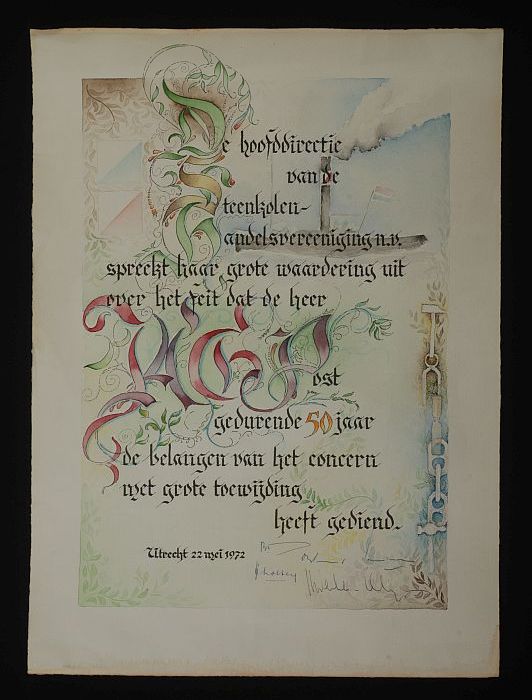 De hoofddirectie
van de
Steenkolen-
Handelsvereeniging n.v.
spreekt haar grote waardering uit
over het feit dat de heer
Post
gedurende 50 jaar
de belangen van het concern
met grote toewijding
heeft gediend.
Utrecht 22 mei 1972